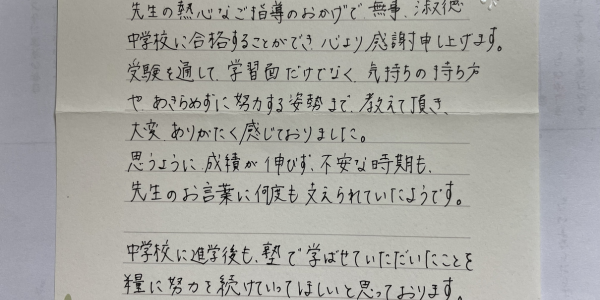 先生の熱心なご指導のおかげで、無事、淑徳
中学校に合格することができ、心より感謝申し上げます。
受験を通して、学習面だけでなく、気持ちの持ち方
や、あきらめずに努力する姿勢まで、教えて頂き、
大変、ありがたく感じておりました。
思うように成績が伸びず、不安な時期も、
先生のお言葉に何度も支えられていたようです。
中学校に進学後も、塾で学ばせていただいたことを
糧に努力を続けていってほしいと思っております。